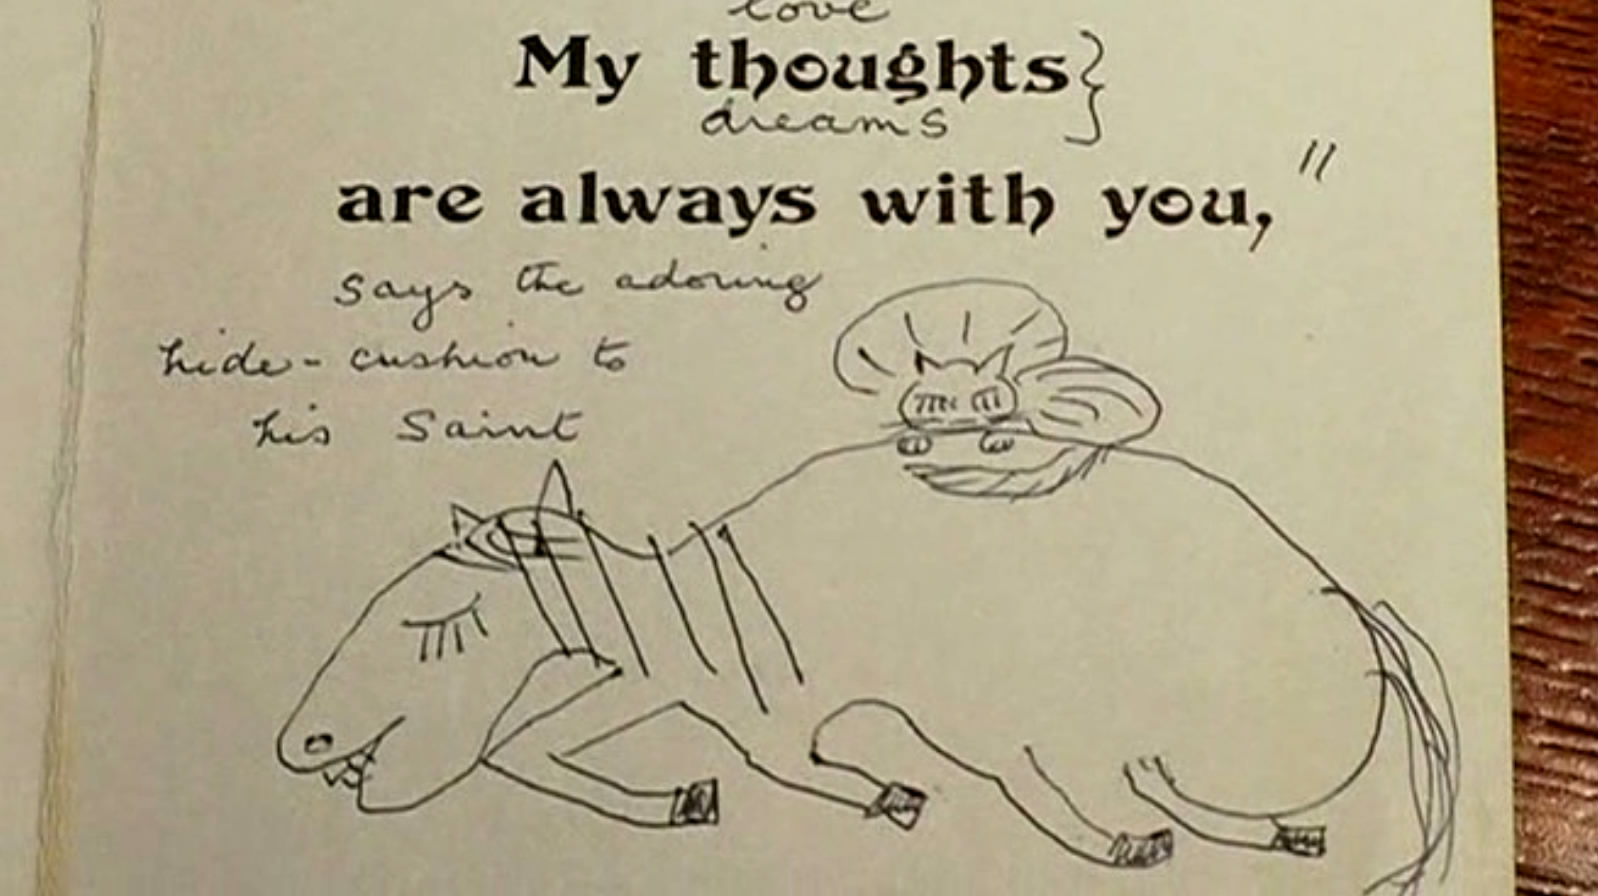 love
My thoughts}
dreams
are always with you,"
says the adoring
hide-cushion to
his Saint